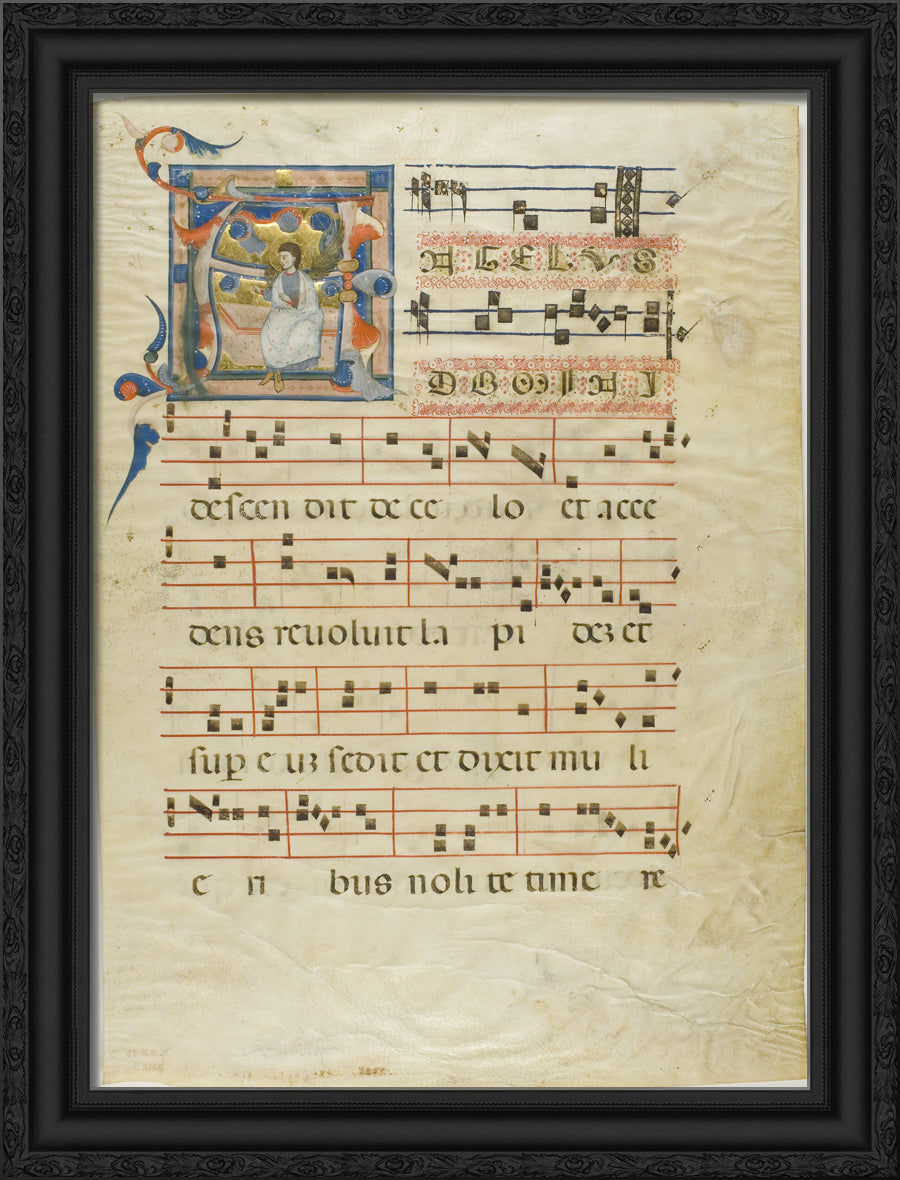 AGELVS
DOMINI
deſcen dit de ce lo et acce
dens reuoluit la pi deʒ et
ſup e uʒ ſedit et dixit mu li
e ri bus noli te time re